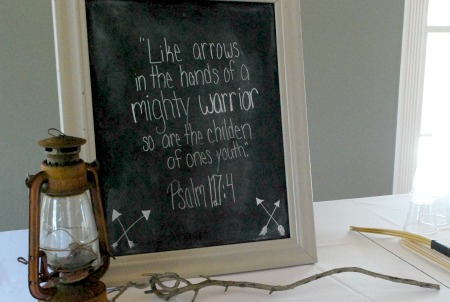 "Like arrows
in the hands of a
mighty warrior
so are the children
of ones youth."
Psalm 127:4